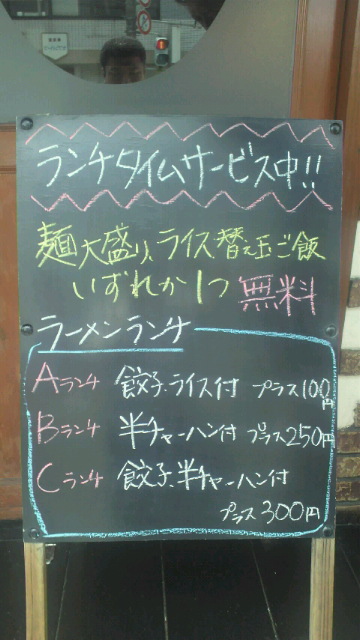 ランチタイムサービス中!!
麺大盛り、ライス、替え玉ご飯
いずれか1つ 無料
ラーメンランチ
Aランチ 餃子、ライス付 プラス100円
Bランチ 半チャーハン付 プラス250円
Cランチ 餃子、半チャーハン付
プラス300円